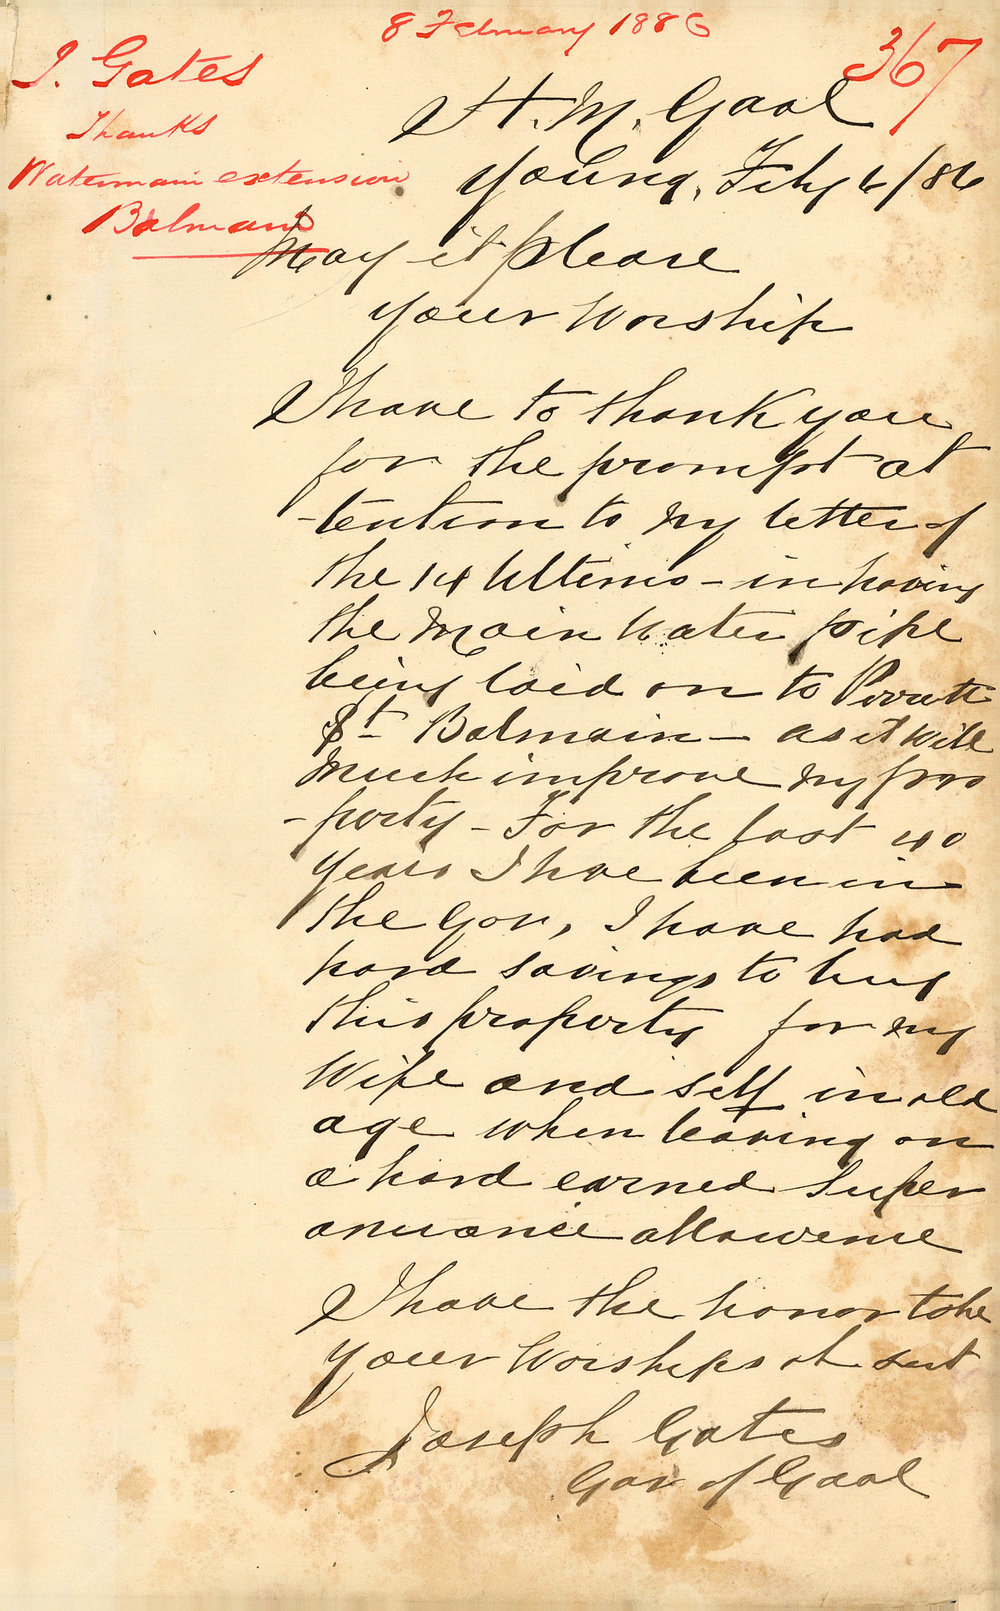 8 February 1886
367
J. Gates
Thanks
Watermain extension
Balmain
H. M. Gaol
Young, Feby 6/86
May it please
your Worship
I have to thank you
for the prompt at
-tention to my letter of
the 14 Ultimo - in having
the Main Water pipe
being laid on to
St Balmain - as it will
much improve my pro
-perty - For the last 40
years I have been in
the Gov, I have had
hard savings to buy
this property for my
Wife and self in old
age when leaving on
a hard earned super
anuance allowence
I have the honor to be
your Worships ob sert
Joseph Gates
Gov of Gaol